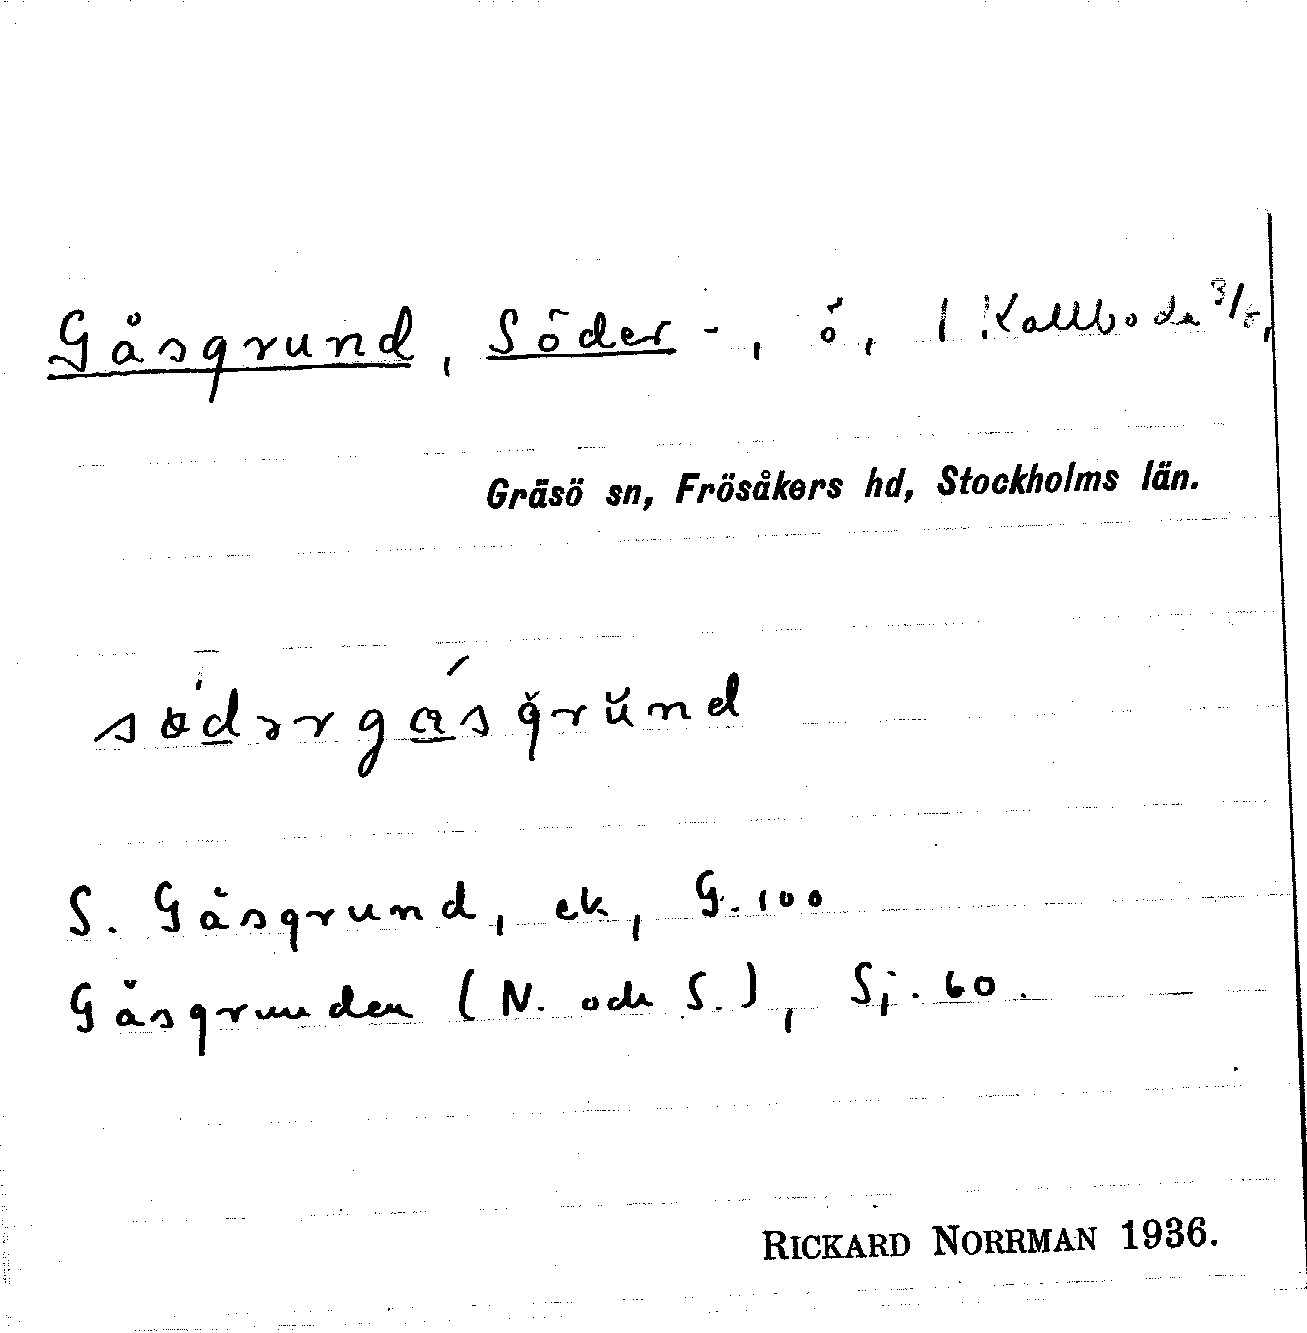 Gåsgrund, Söder-, ö, 1 Kallboda 3/6,
Gräsö sn, Frösåkers hd, Stockholms län.
S. Gåsgrund, ek, G. 100
Gåsgrunden (N. och S.), Sj. 60.
RICKARD NORRMAN 1936.